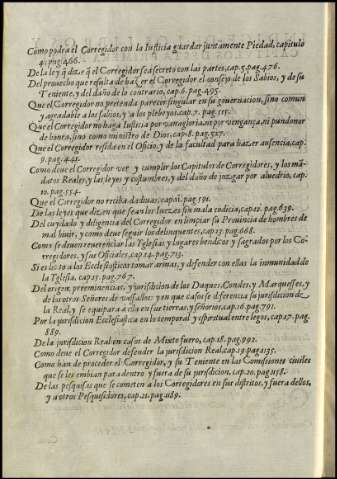 Como podra el Corregidor con la Iusticia guardar juntamente Piedad, capitulo
4. pag. 466.
De la ley q̃ dize q̃ el Corregidor sea secreto con las partes, cap. 5. pag. 476.
Del prouecho que resulta de hazer el Corregidor el consejo de los Sabios, y de su
Teniente, y del daño de lo contrario, cap. 6. pag. 495.
Que el Corregidor no pretenda parecer singular en su gouernacion, sino comun
y agradable a los sabios, y a los plebeyos, cap. 7. pag. 515.
Que el Corregidor no haga Iusticia por vanagloria, ni por vengança, ni pundonor
de honra, sino como ministro de Dios, cap. 8. pag. 527.
Que el Corregidor resida en el Oficio, y de la facultad para hazer ausencia, cap.
9. pag. 441.
Como deue el Corregidor ver y cumplir los Capitulos de Corregidores, y los mã
datos Reales, y las leyes y costumbres, y del daño de juzgar por aluedrio, cap.
10. pag. 554.
Que el Corregidor no reciba dadiuas, cap. 11. pag. 591.
De las leyes que dizen que sean los Iuezes sin mala codicia, cap. 12. pag. 639.
Del cuydado y diligencia del Corregidor en limpiar su Prouincia de hombres de
mal biuir, y como deue seguir los delinquentes, cap. 13. pag. 668.
Como se deuen reuerenciar las Yglesias, y lugares benditos y sagrados por los Co-
rregidores, y sus Oficiales, cap. 14. pag. 713.
Si es licito a los Eclesiasticos tomar armas, y defender con ellas la inmunidad de
la Yglesia, cap. 15. pag. 767.
Del origen, preeminencias, y jurisdicion de los Duques, Condes, y Marqueses, y
de los otros Señores de vassallos: y en que casos se diferencia su jurisdicion de
la Real, y se equipara a ella en sus tierras, y señorios, cap. 16. pag. 791.
Por la jurisdicion Eclesiastica en lo temporal y espiritual entre legos, cap. 17. pag.
889.
De la jurisdicion Real en casos de Mixto fuero, cap. 18. pag. 992.
Como deue el Corregidor defender la jurisdicion Real, cap. 19. pag. 1135.
Como han de proceder el Corregidor, y su Teniente en las Comissiones ciuiles
que se les embian para dentro y fuera de su jurisdicion, cap. 20. pag. 1158.
De las pesquisas que se cometen a los Corregidores en sus distritos, y fuera dellos,
y a otros Pesquisidores, cap. 21. pag. 1189.